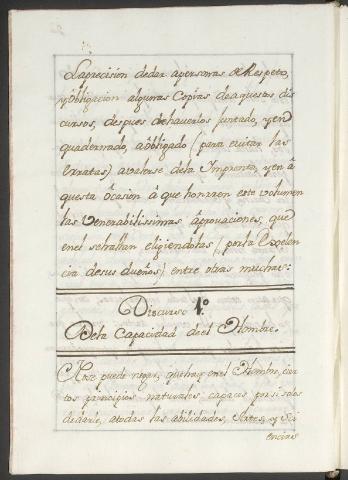 La precision de dar a personas de Respeto,
y obligacion algunas Copias de aquestos dis
cursos, despues de haverlos juntado, y en
quadernado, à obligado (para evitar las
erratas) avalerse de la Imprenta, y en à
questa ôcasion à que honrasen este volumen
las Venerabilissimas âprovaciones, que
en el se hallan eligiendolas (por la Excelen
cia de sus dueños) entre otras muchas:
Discurso 1.º
De la Capacidad de el Hombre.
No se puede negar, que hay en el Hombre, cier
tos principios naturales capaces por si solos
de darle, a todas las abilidades, Artes, y Sci
encias